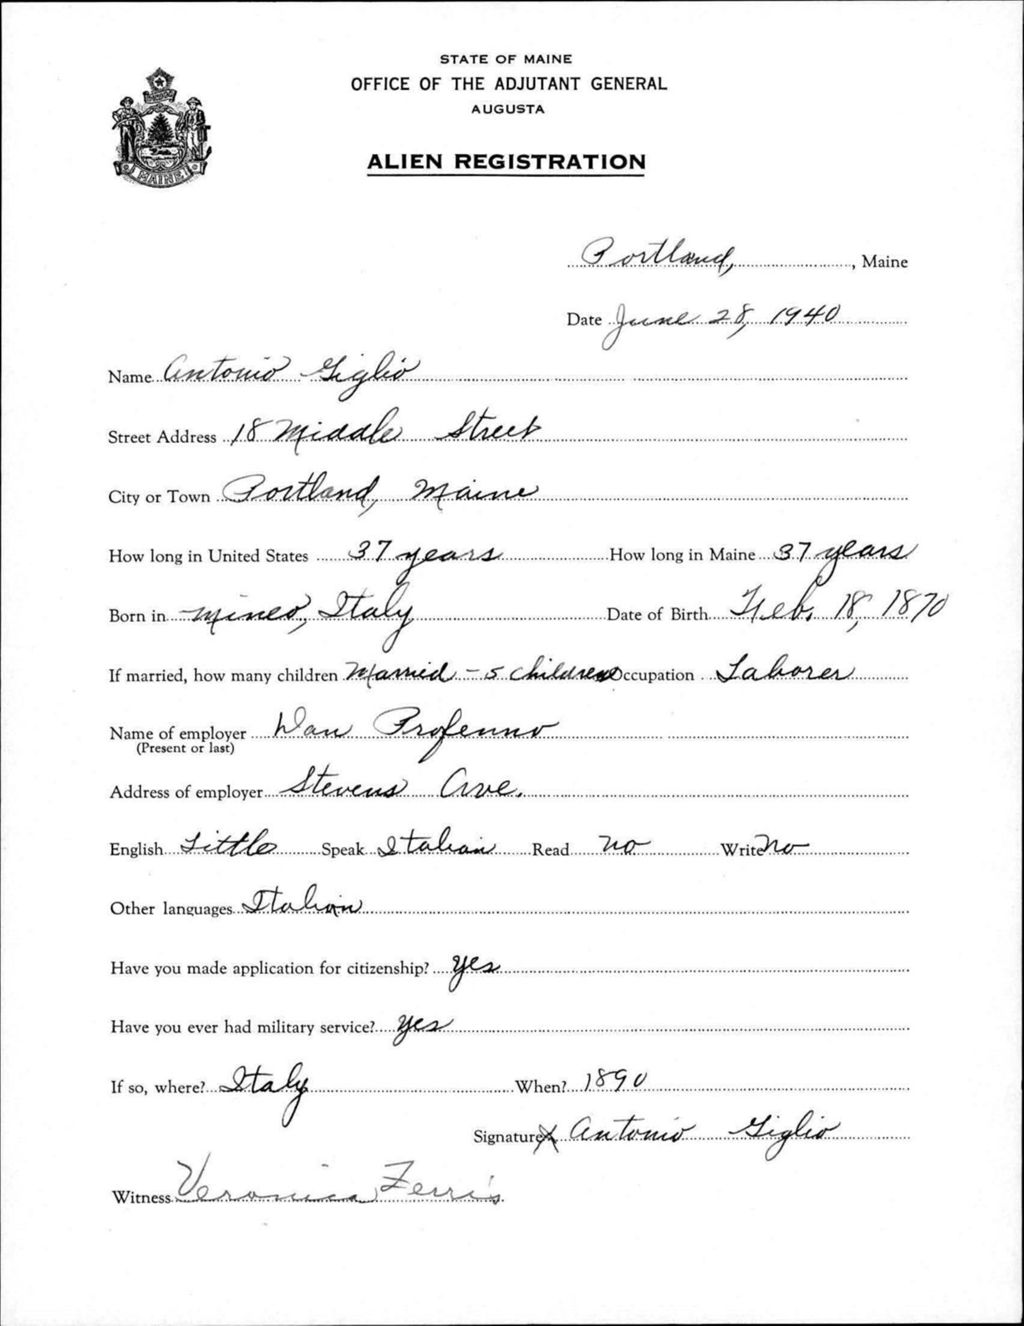 STATE OF MAINE
OFFICE OF THE ADJUTANT GENERAL
AUGUSTA
ALIEN REGISTRATION
MAINE
Portland, , Maine
Date June 28, 1940
Name Antonio Giglio
Street Address 18 Middle Street
City or Town Portland, Maine
How long in United States 37 years How long in Maine 37 years
Born in Mineo, Italy Date of Birth Feb. 18, 1870
If married, how many children Married - 5 children Occupation Laborer
Name of employer Dan Profenno
(Present or last)
Address of employer Stevens Ave.
English Little Speak Italian Read No Write No
Other languages Italian
Have you made application for citizenship? Yes
Have you ever had military service? Yes
If so, where? Italy When? 1890
Signature X Antonio Giglio
Witness Veronica Ferris